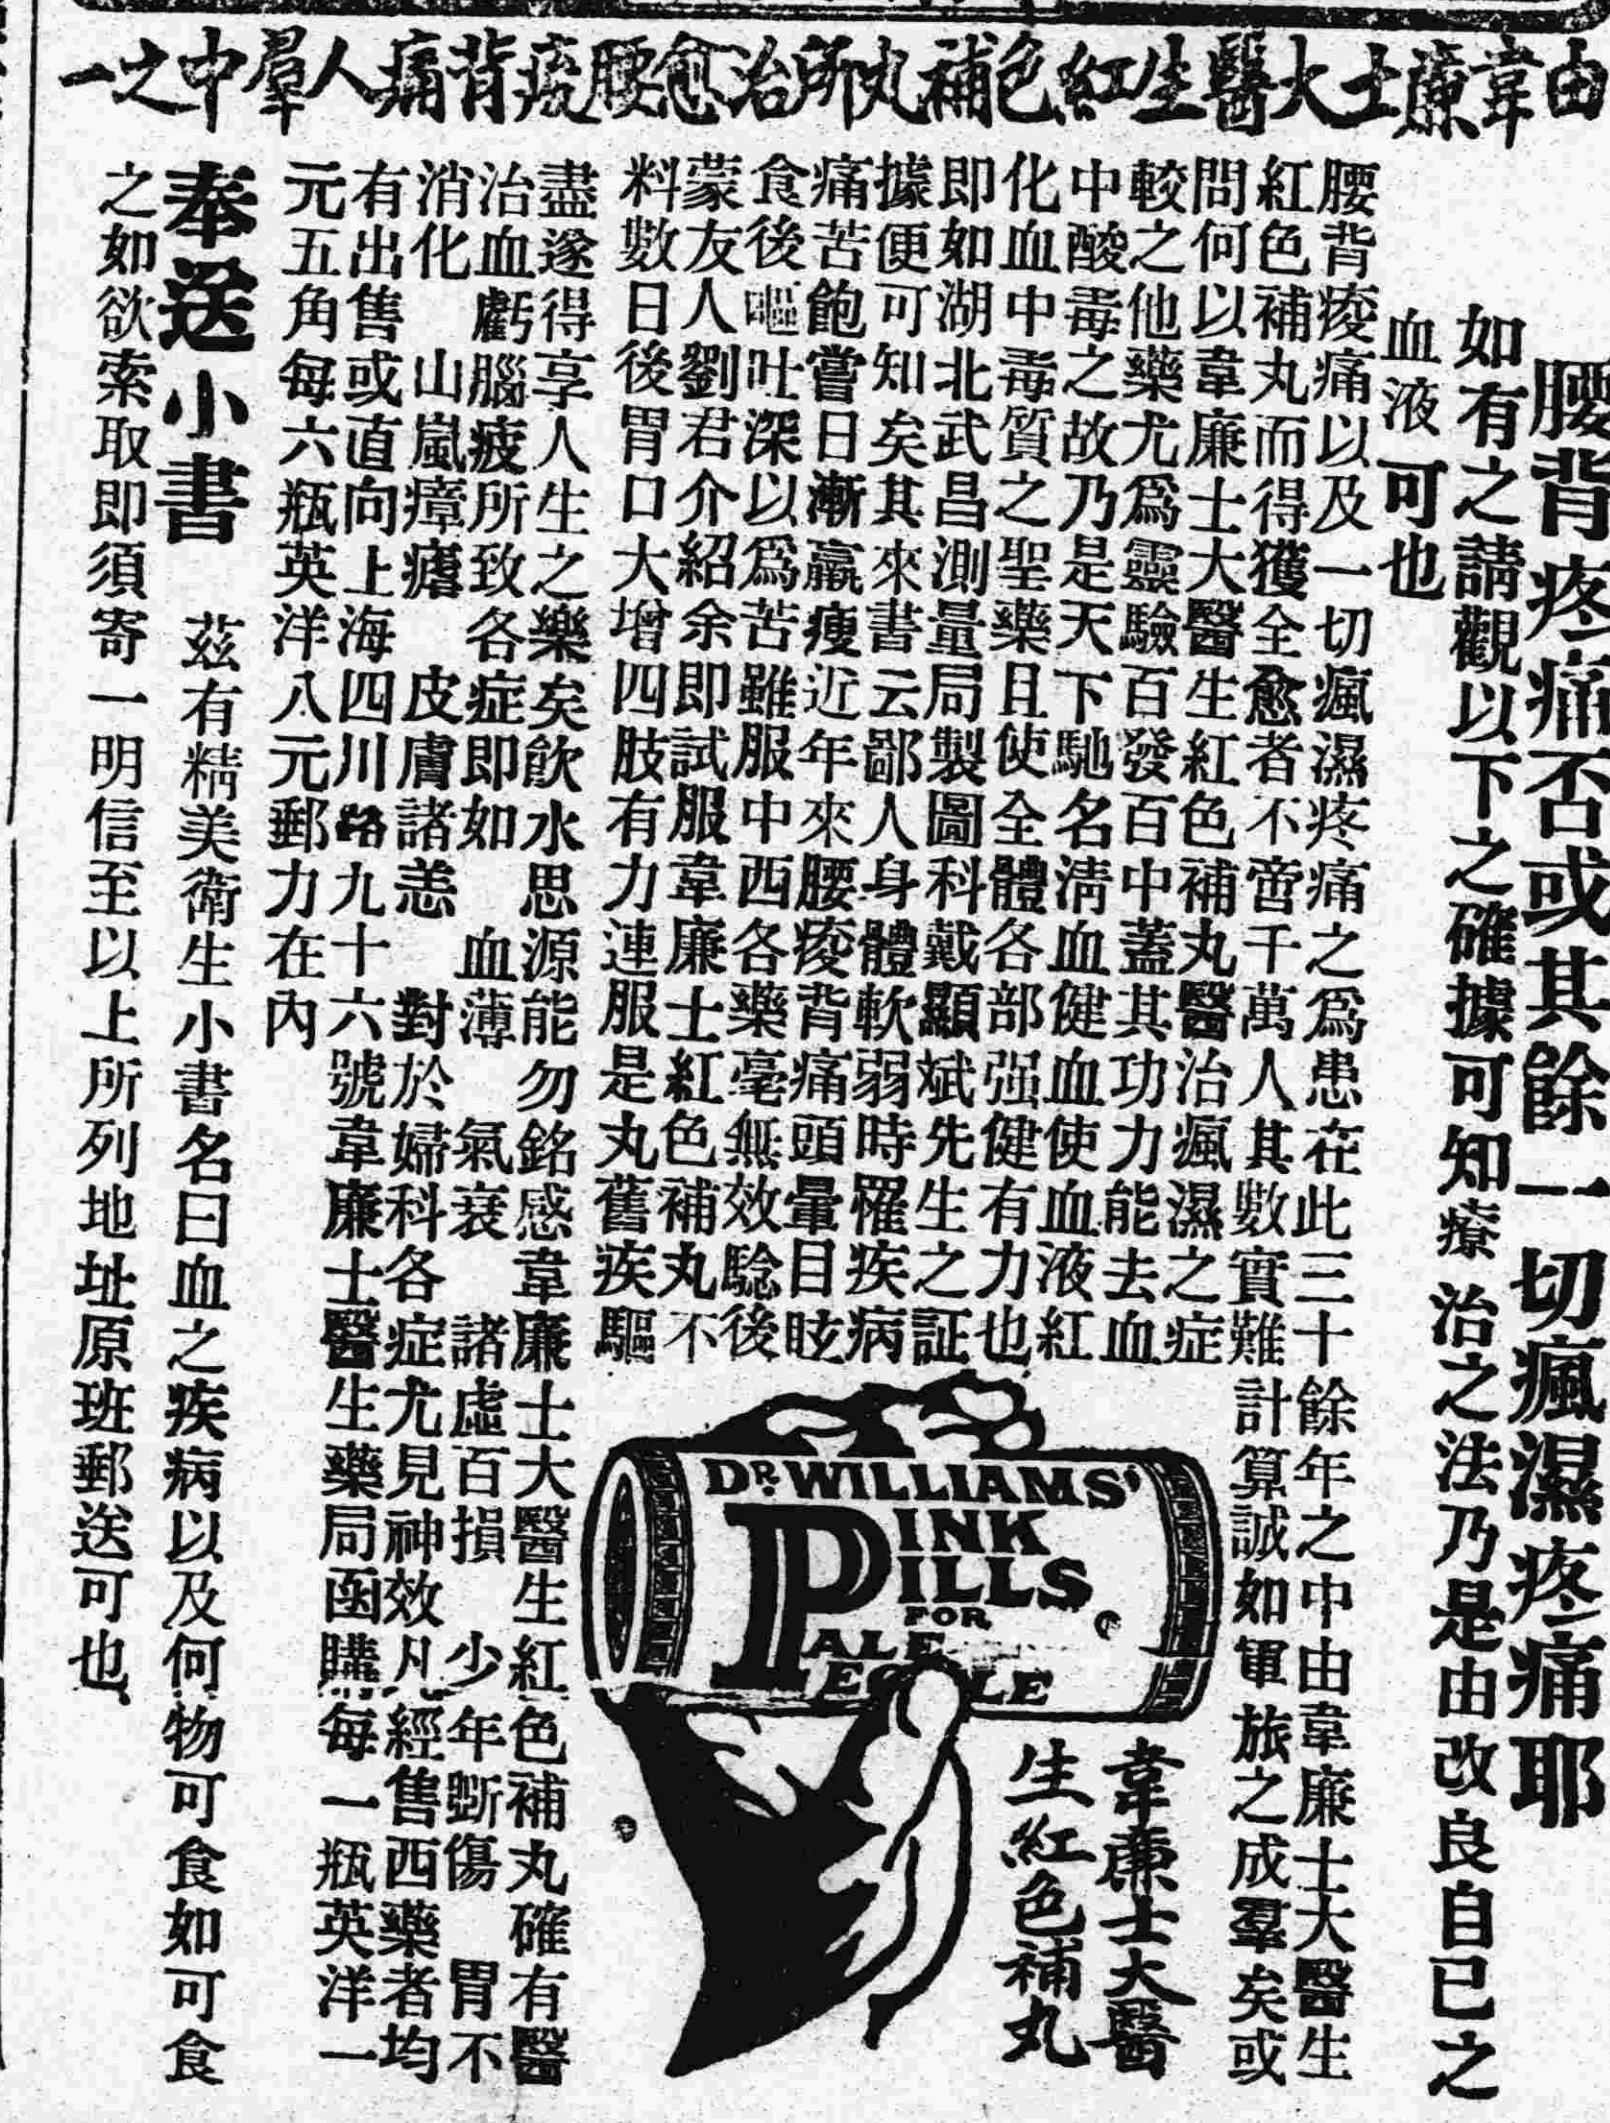 由韋廉士大醫生紅色補丸所治愈腰痠背痛人羣中之一
腰背疼痛否或其餘一切瘋濕疼痛耶
如有之請觀以下之確據可知療治之法乃是由改良自己之
血液可也
腰背痠痛以及一切瘋濕疼痛之為患在此三十餘年之中由韋廉士大醫生
紅色補丸而得獲全愈者不啻千萬人其數實難計算誠如軍旅之成羣矣或
問何以韋廉士大醫生紅色補丸醫治瘋濕之症
較之他藥尤為靈驗百發百中蓋其功力能去血
中酸毒之故乃是天下馳名清血健血使血液紅
化血中毒質之聖藥且使全體各部强健有力也
即如湖北武昌測量局製圖科戴顯斌先生之証
據便可知矣其來書云鄙人身體軟弱時罹疾病
痛苦飽嘗日漸羸瘦近年來腰痠背痛頭暈目眩
食後嘔吐深以為苦雖服中西各藥毫無效騐後
蒙友人劉君介紹余即試服韋廉士紅色補丸不
料數日後胃口大增四肢有力連服是丸舊疾驅
盡遂得享人生之樂矣飲水思源能勿銘感韋廉士大醫生紅色補丸確有醫
治血虧腦疲所致各症即如 血薄 氣衰 諸虛百損 少年斲傷 胃不
消化 山嵐瘴瘧 皮膚諸恙 對於婦科各症尤見神效凡經售西藥者均
有出售或直向上海四川路九十六號韋廉士醫生藥局函購每一瓶英洋一
元五角每六瓶英洋八元郵力在內
DR. WILLIAMS'
PINK
PILLS
FOR
PALE
韋廉士大醫
生紅色補丸
奉送小書 茲有精美衛生小書名曰血之疾病以及何物可食如可食
之如欲索取即須寄一明信至以上所列地址原班郵送可也